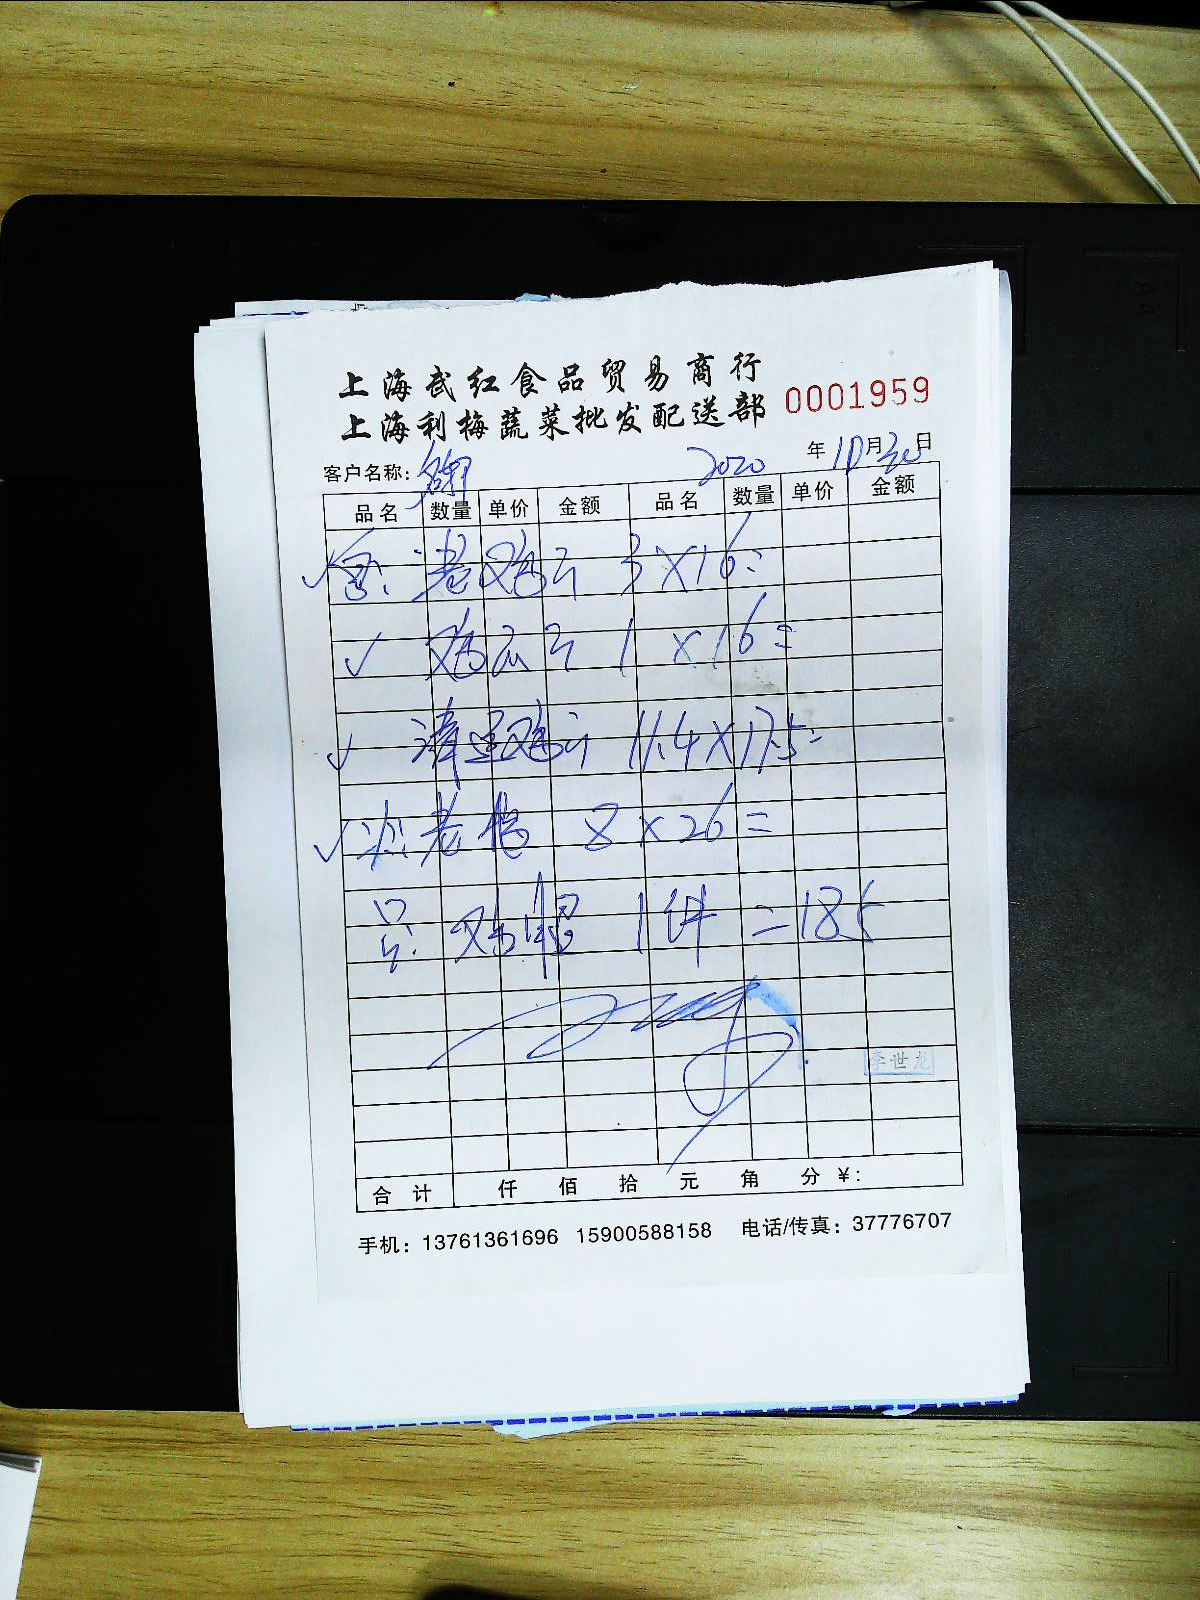 上海武红食品贸易商行
上海利梅蔬菜批发配送部 0001959
客户名称: 2020 年 10 月 20 日
品名 数量 单价 金额 品名 数量 单价 金额
老鸡 3×16=
鸡 1×16=
清远鸡 11.4×17.5=
老 8×26=
鸡 1件 =185
李世龙
合计 仟 佰 拾 元 角 分 ¥:
手机: 13761361696 15900588158 电话/传真: 37776707